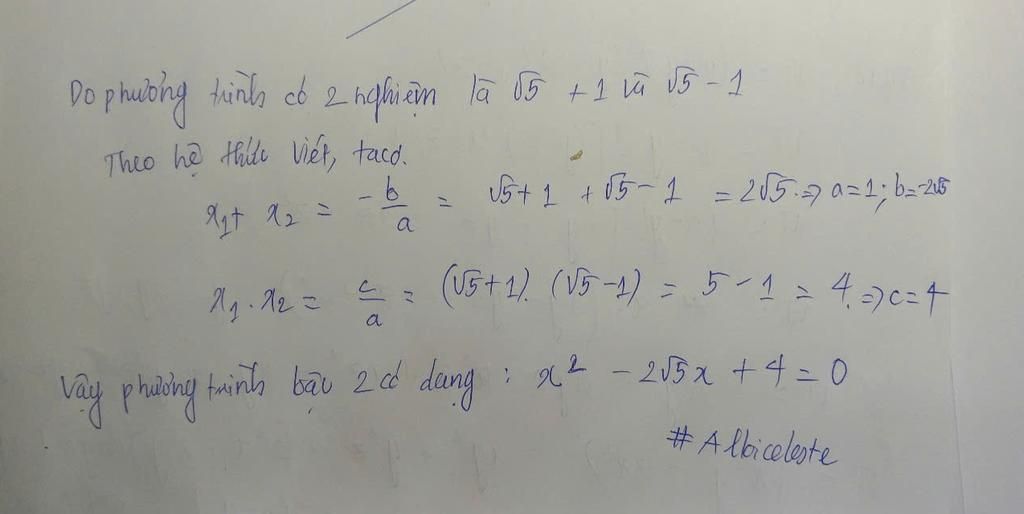 Do phương trình có 2 nghiệm là √5 + 1 và √5 - 1
Theo hệ thức Viét, ta có.
x₁ + x₂ = -b/a = √5 + 1 + √5 - 1 = 2√5 ⇒ a = 1; b = -2√5
x₁ . x₂ = c/a = (√5 + 1). (√5 - 1) = 5 - 1 = 4. ⇒ c = 4
Vậy phương trình bậc 2 có dạng : x² - 2√5x + 4 = 0
# Albiceleste